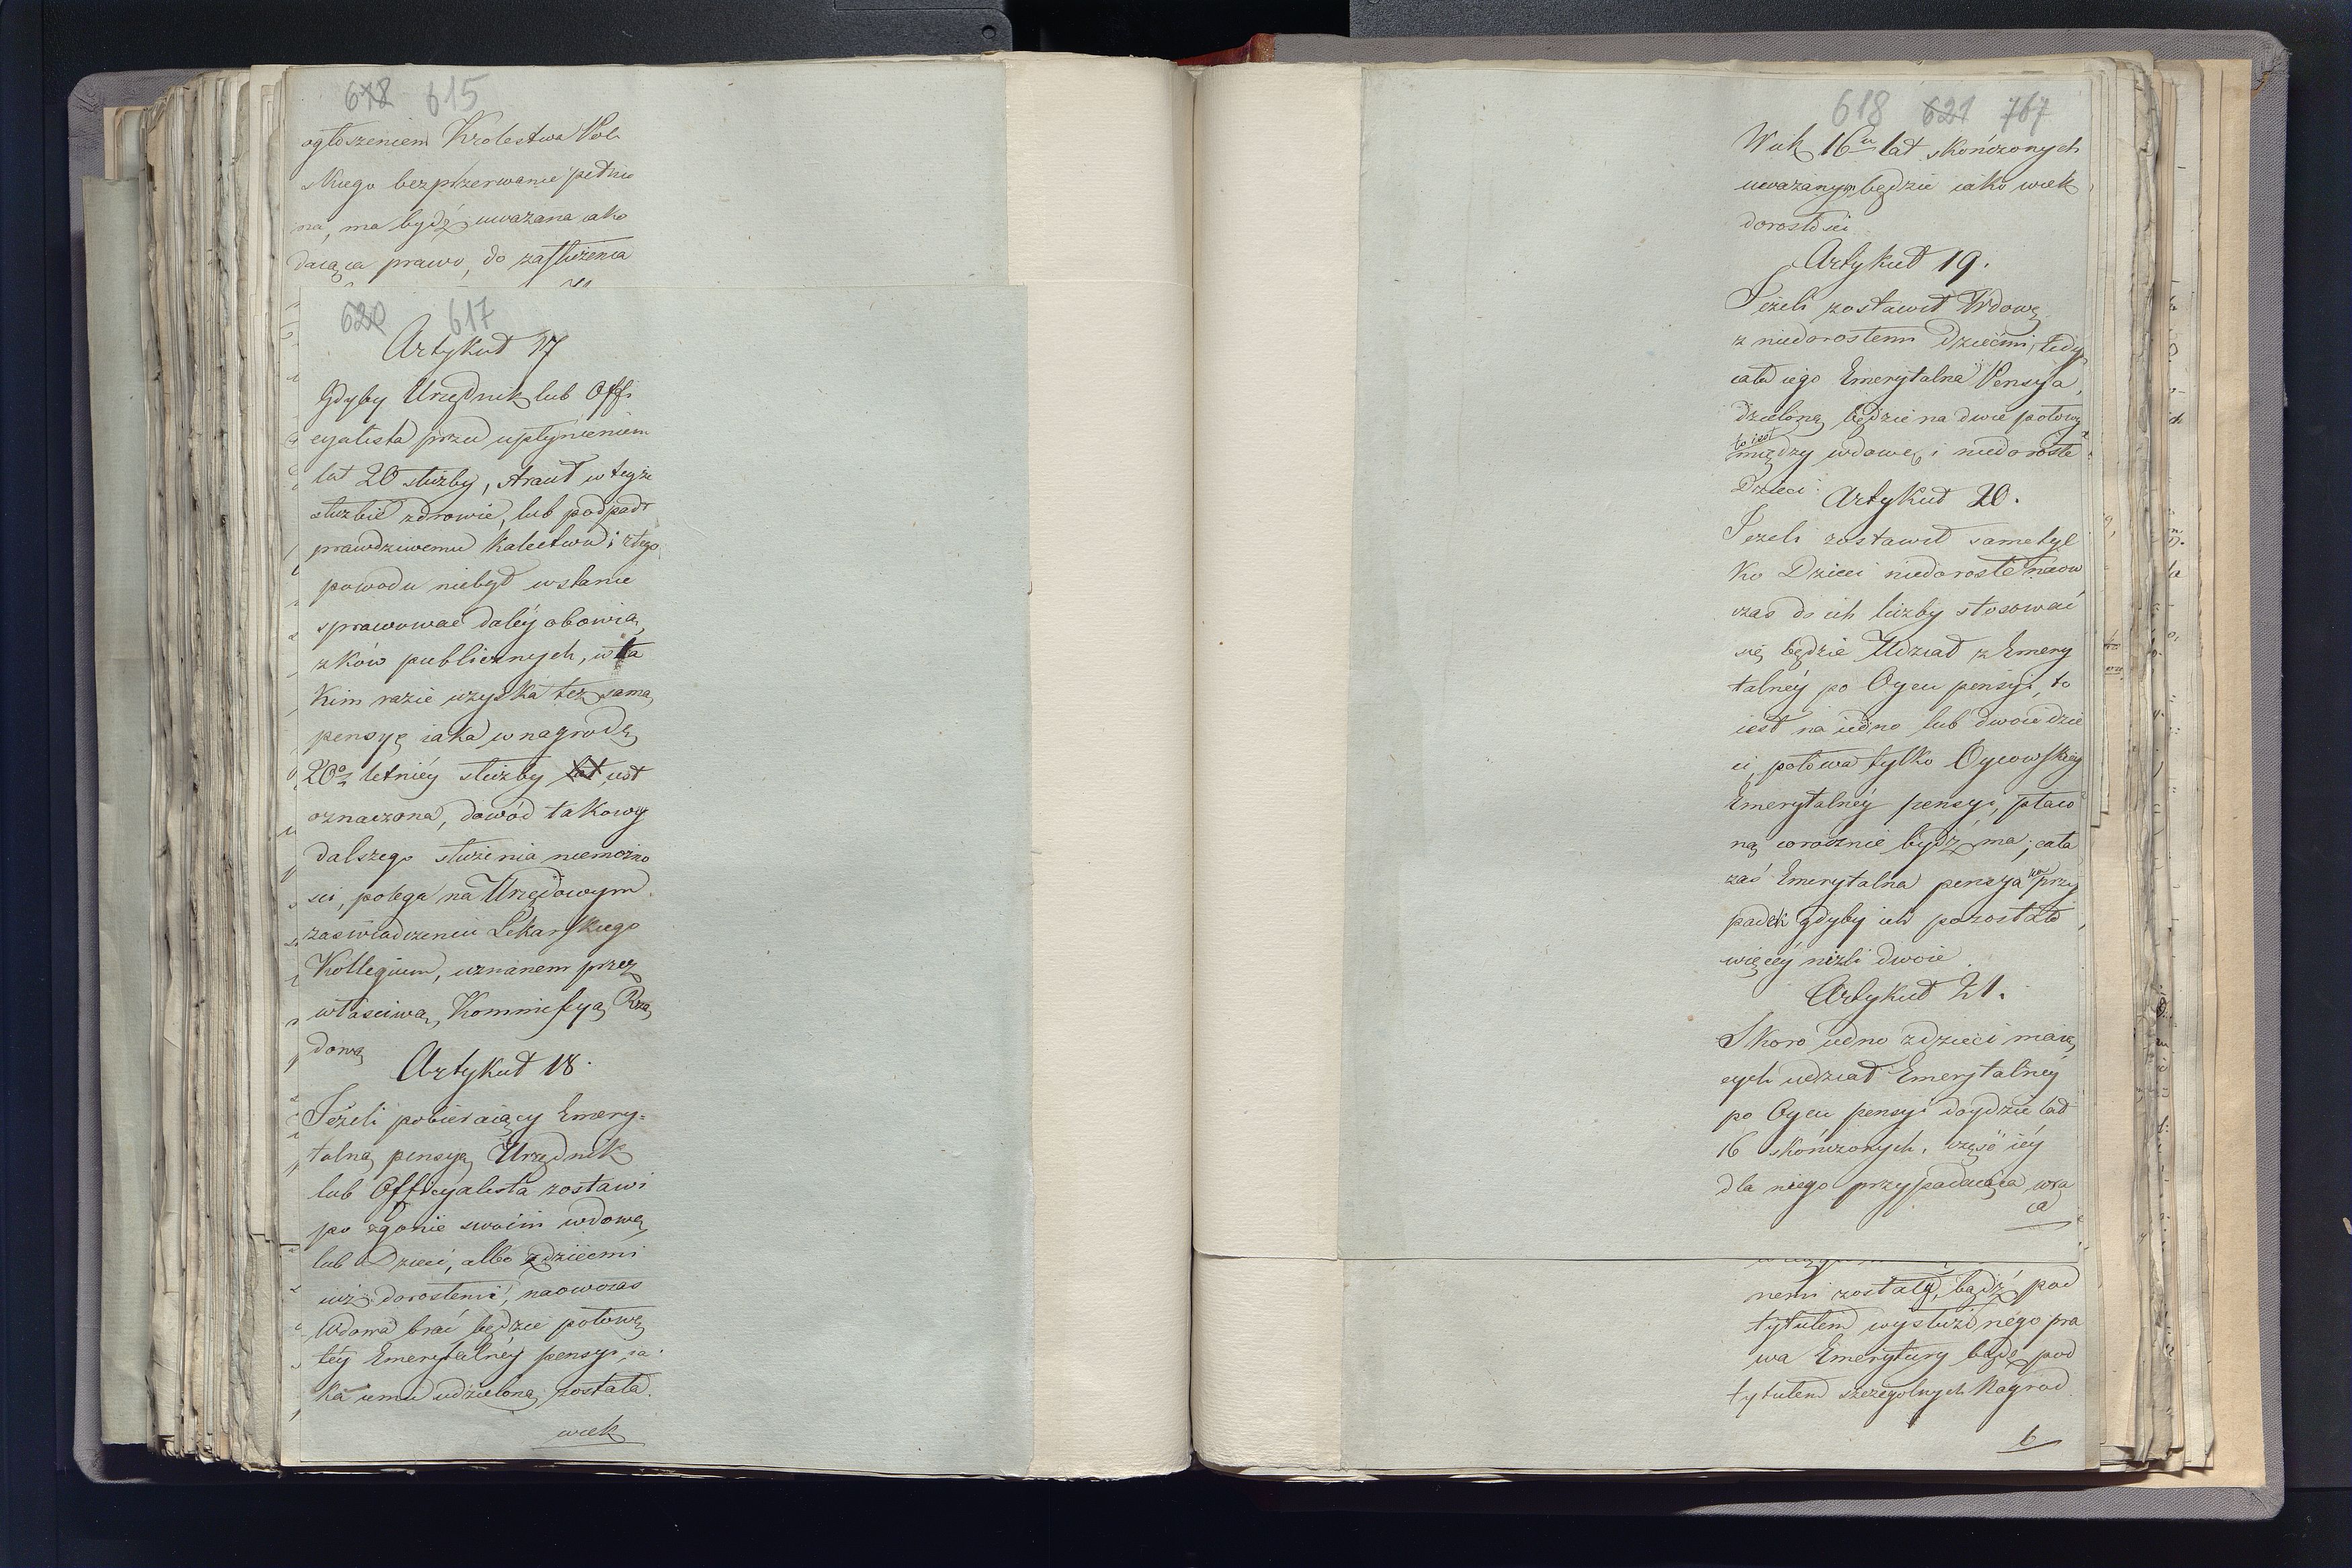 618 615
ogłoszeniem Krolestwa Pol
skiego bezprzerwanie pełnio
na, ma bydź uważana iako
daiąca prawo, do zasłużenia
620 617
Artykuł 17
Gdyby Urzędnik lub Offi
cyalista przed upłynieniem
lat 20 służby, stracił w teyże
służbie zdrowie, lub podpadł
prawdziwemu kalectwu i ztego
powodu niebył wstanie
sprawować daléy obowią
zków publicznych, w ta
kim razie uzyska też samą
pensyę iaka w nagrodę
20o letniéy służby lat iest
oznaczona, dowód takowy
dalszego służenia niemożno
sci, polega na Urzędowym
zaswiadczeniu Lekarskiego
Kollegium, uznanem przez
własciwą, Kommissyą Rzą
dową
Artykuł 18.
Jeżeli pobieraiący Emery=
talną pensyą Urzędnik
lub Officyalista zostawi
po zgonie swoim wdowę
lub Dzieci, albo z dziećmi
iuż dorosłemi, naowczas
Wdowa brać będzie połowę
téy Emerytalnéy pensyi, ia
ka iemu udzieloną została.
wiek
618 621 767
Wiek 16u lat skończonych
uważanym będzie iako wiek
dorosłosci
Artykuł 19.
Jeżeli zostawił Wdowę
z niedorosłemi Dziećmi, tedy
cała iego Emerytalna Pensya,
dzieloną będzie na dwie połowy
to iest
między wdowę i niedorosłe
Dzieci.
Artykuł 20.
Jeżeli zostawił same tyl
ko Dzieci niedorosłe naow
czas do ich liczby stosować
się będzie Udział z Emery
talnéy po Oycu pensyi, to
iest na iedno lub dwoie dzie
ci połowa tylko Oycowskiéy
Emerytalnéy pensyi, płaco
ną corocznie bydź ma; cała
zaś Emerytalna pensya w przy
padek gdyby ich pozostało
więcéy niżli dwoie.
Artykuł 21.
Skoro iedno z dzieci maią
cych udział Emerytalnéy
po Oycu pensyi doydzie lat
16 skończonych, część iéy
dla niego przypadaiąca wra
ca
nemi została, bądź pod
tytułem wysłużonégo pra
wa Emerytury bądź pod
tytułem szczegolnych Nagrod.
b